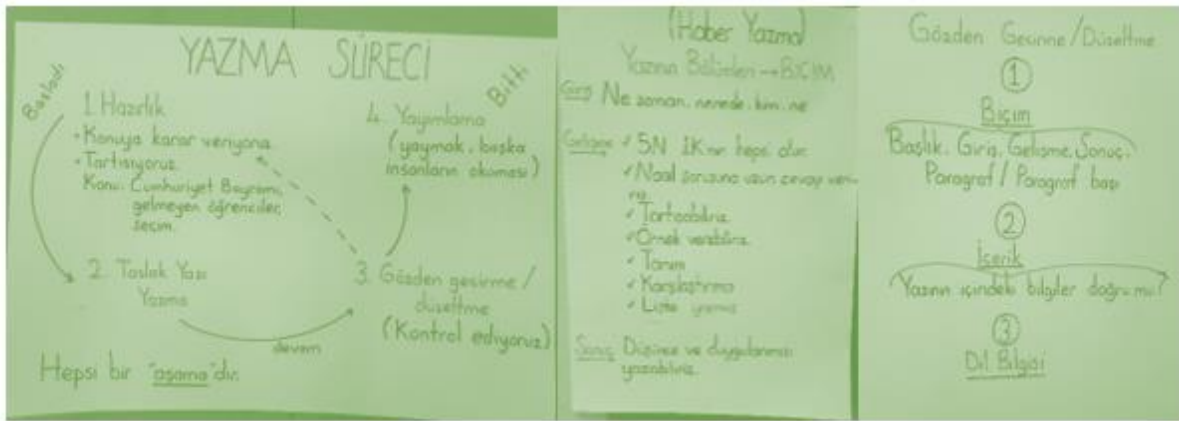 YAZMA SÜRECİ
Başladı
1. Hazırlık
• Konuya karar veriyoruz.
• Tartışıyoruz.
Konu: Cumhuriyet Bayramı,
gelmeyen öğrenciler,
seçim.
2. Taslak Yazı
Yazma
devam
3. Gözden geçirme /
düzeltme
(Kontrol ediyoruz)
4. Yayımlama
(yaymak, başka
insanların okuması)
Bitti
Hepsi bir "aşama"dır.
(Haber Yazma)
Yazının Bölümleri → BİÇİM
Giriş Ne zaman, nerede, kim, ne
Gelişme ✓ 5N 1K'nın hepsi olur.
✓ Nasıl sorusuna uzun cevap
✓ Tartışabiliriz.
✓ Örnek verebiliriz.
✓ Tanım
✓ Karşılaştırma
✓ Liste
Sonuç Düşünce ve duygularımızı
yazabiliriz.
Gözden Geçirme / Düzeltme
1
Biçim
Başlık, Giriş, Gelişme, Sonuç,
Paragraf / Paragraf başı
2
İçerik
(Yazının içindeki bilgiler doğru mu?)
3
Dil Bilgisi